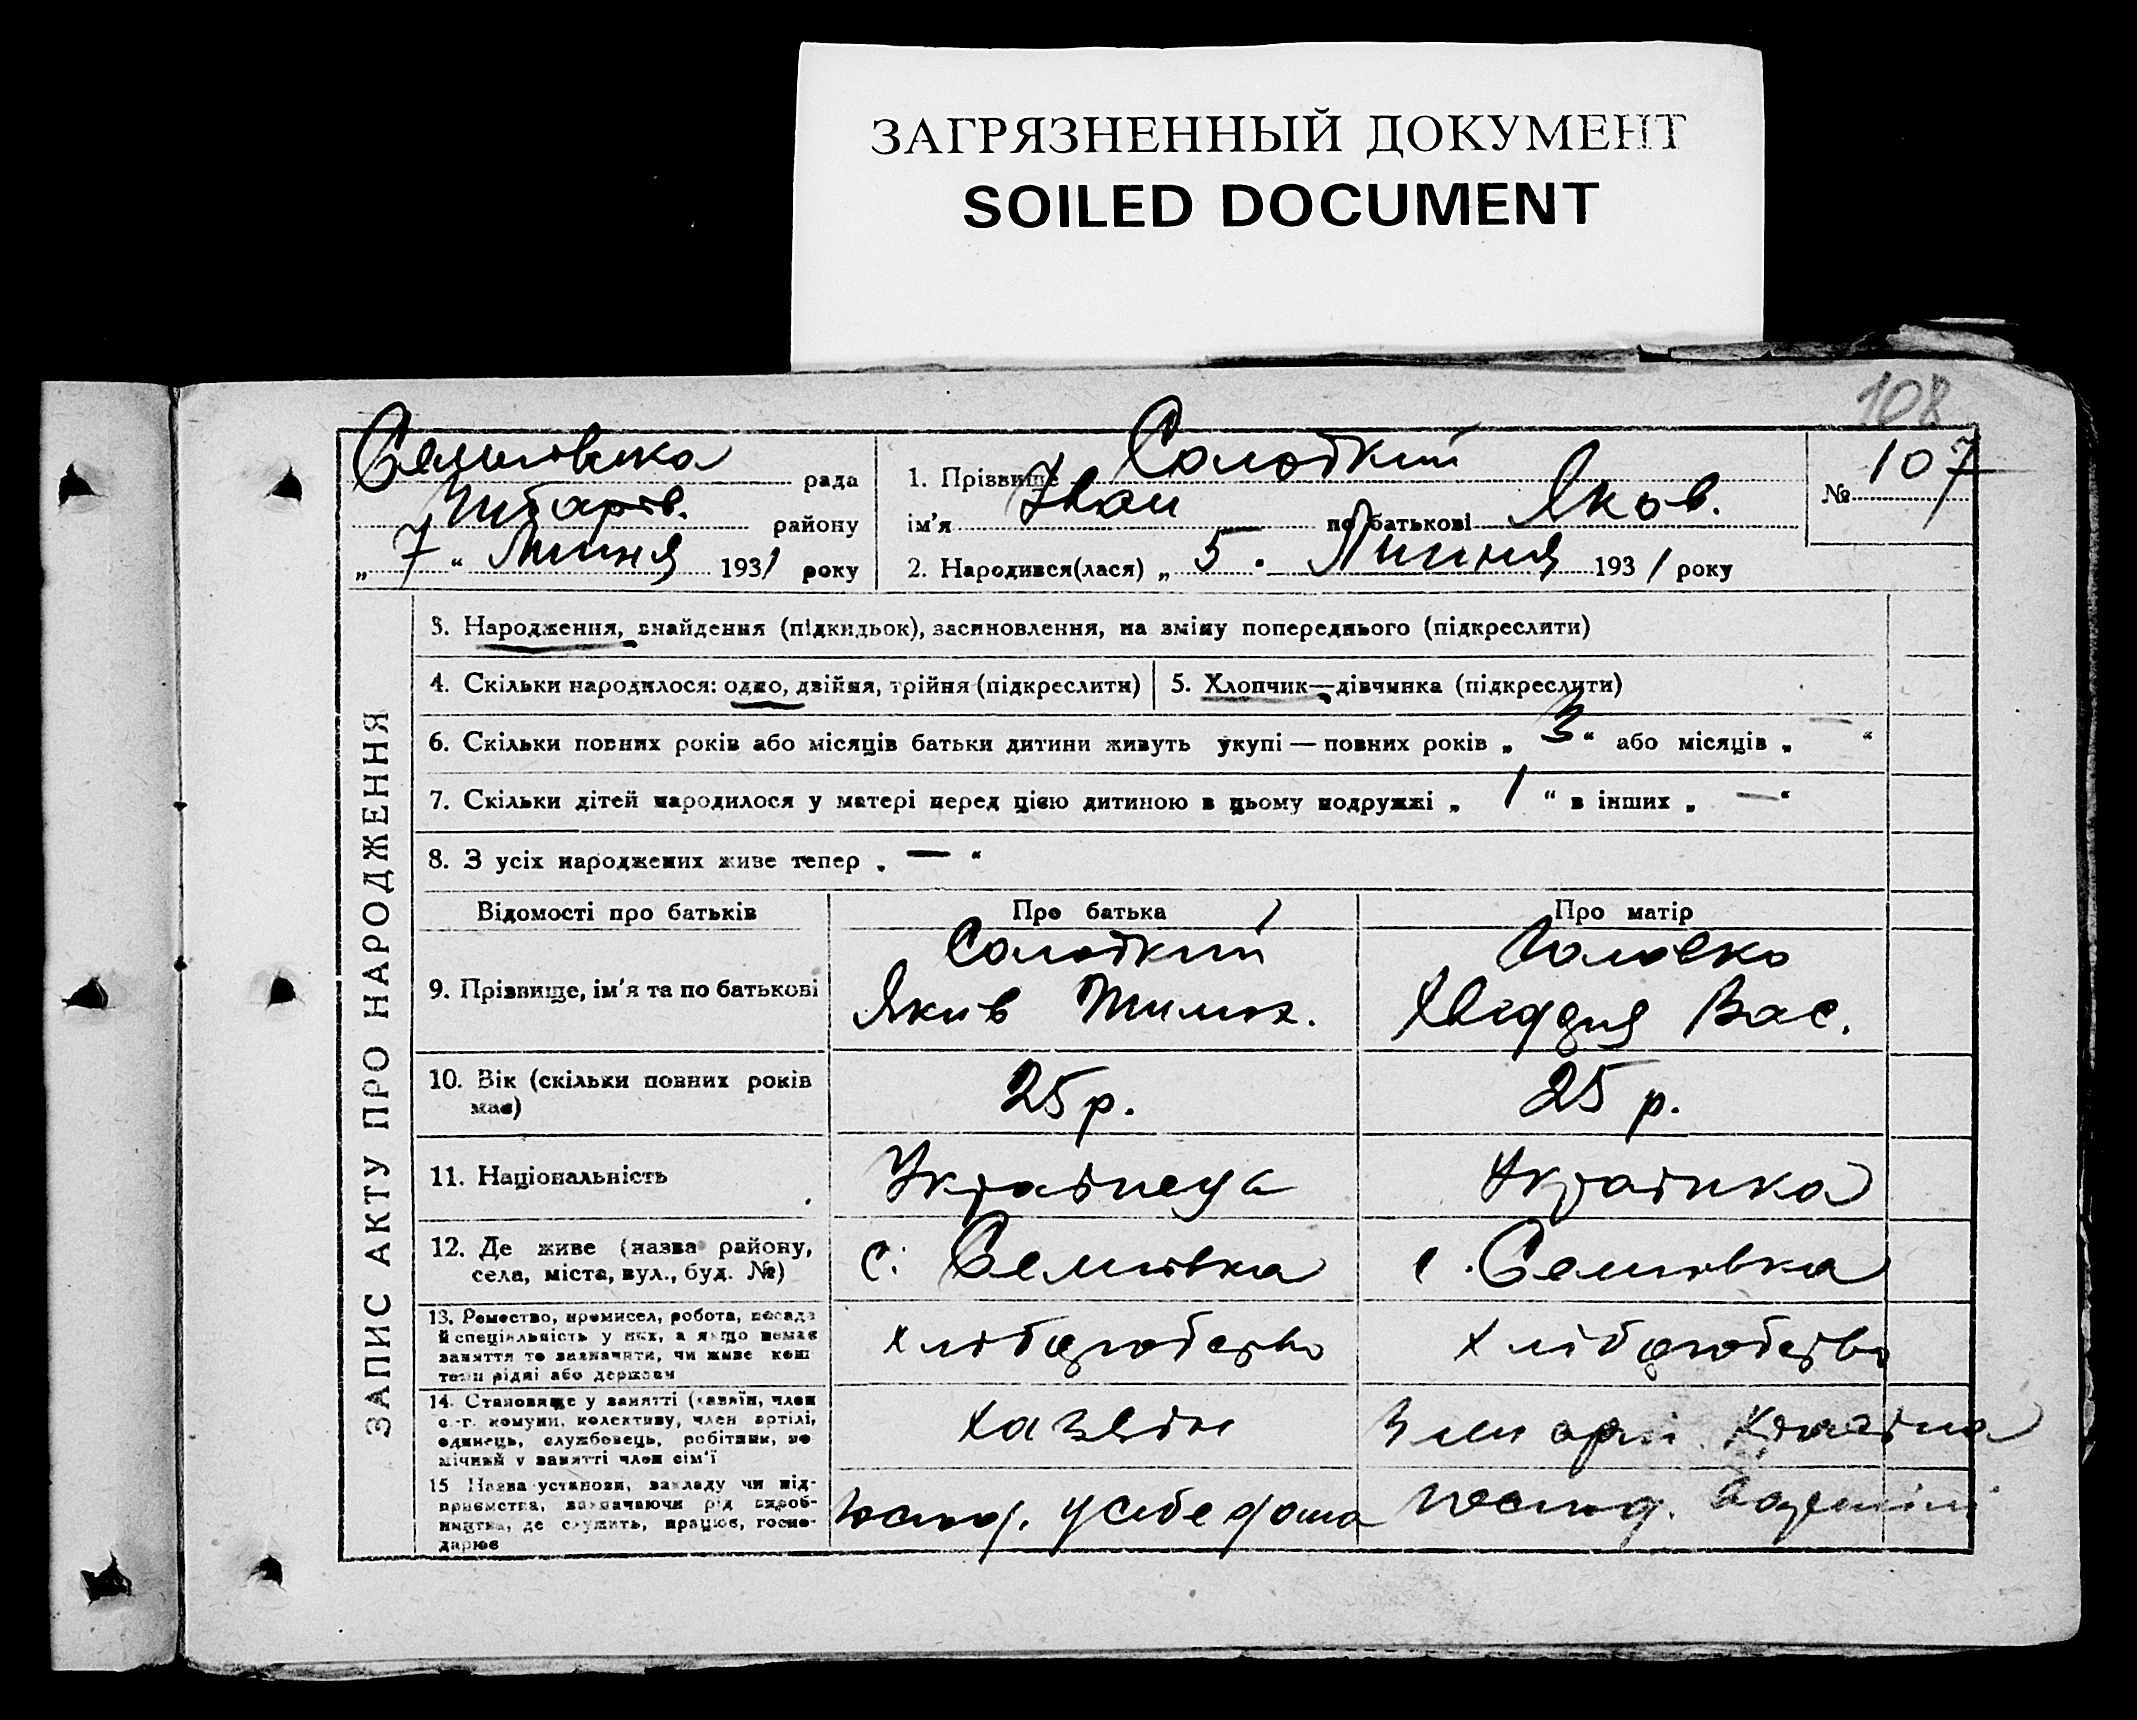 ЗАГРЯЗНЕННЫЙ ДОКУМЕНТ
SOILED DOCUMENT
108
ЗАПИС АКТУ ПРО НАРОДЖЕННЯ
рада
району
„ 7 “ Липня 1931 року
1. Прізвище Солодкий
ім'я Іван по батькові Яков.
№ 107
2. Народився(лася) „ 5 . Липня 1931 року
3. Народження, знайдення (підкидьок), засиновлення, на зміну попереднього (підкреслити)
4. Скільки народилося: одно, двійня, трійня (підкреслити)
5. Хлопчик—дівчинка (підкреслити)
6. Скільки повних років або місяців батьки дитини живуть укупі — повних років „ 3 “ або місяців „ — “
7. Скільки дітей народилося у матері перед цією дитиною в цьому подружжі „ 1 “ в інших „ — “
8. З усіх народжених живе тепер „ — “
Відомості про батьків
Про батька
Про матір
9. Прізвище, ім'я та по батькові
Солодкий
Яков Тимох.
Головко
Вас.
10. Вік (скільки повних років
має)
25 р.
25 р.
11. Національність
Українець
Українка
12. Де живе (назва району,
села, міста, вул., буд. №)
с. Семиовка
с. Семиовка
13. Ремество, промисел, робота, посада
й спеціяльність у них, а якщо немає
заняття то зазначити, чи живе кош
том рідні або держави
хліборобство
хліборобство
14. Становище у занятті (хазяїн, член
с.-г. комуни, колективу, член артілі,
одинець, службовець, робітник, по
мічний у занятті член сім'ї
хазяїн
15 Назва установи, закладу чи під-
приємства, зазначаючи рід вироб-
ництва, де служить, працює, госпо-
дарює
господ. у себе дома
господ.